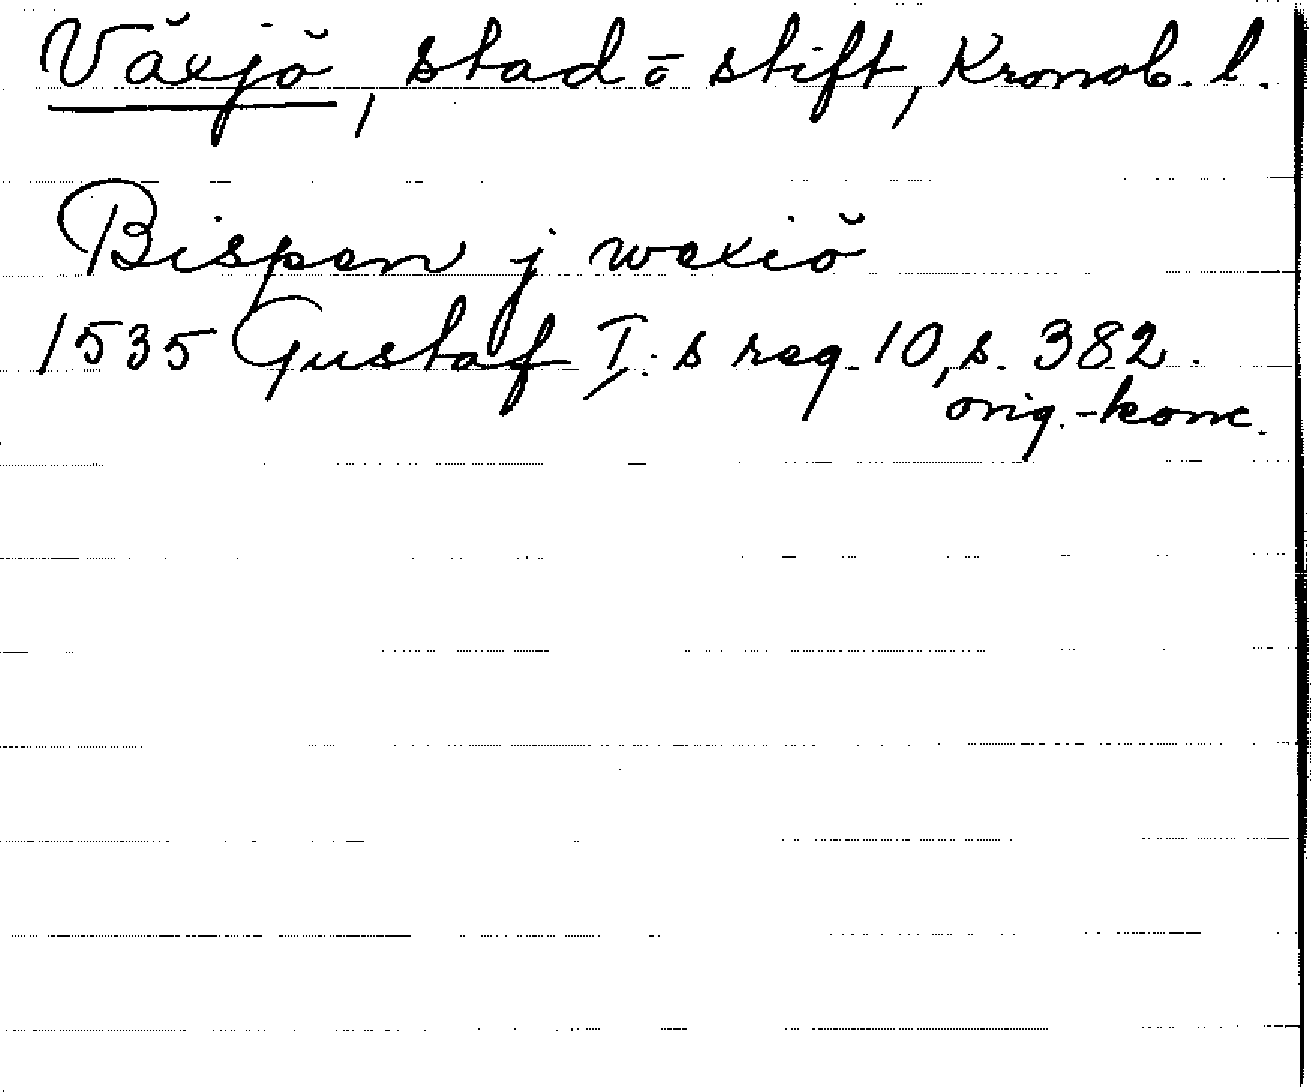 Växjö, stad o stift, Kronob. l.
Bispen j wexiö
1535 Gustaf I:s reg. 10, s. 382.
orig.-konc.